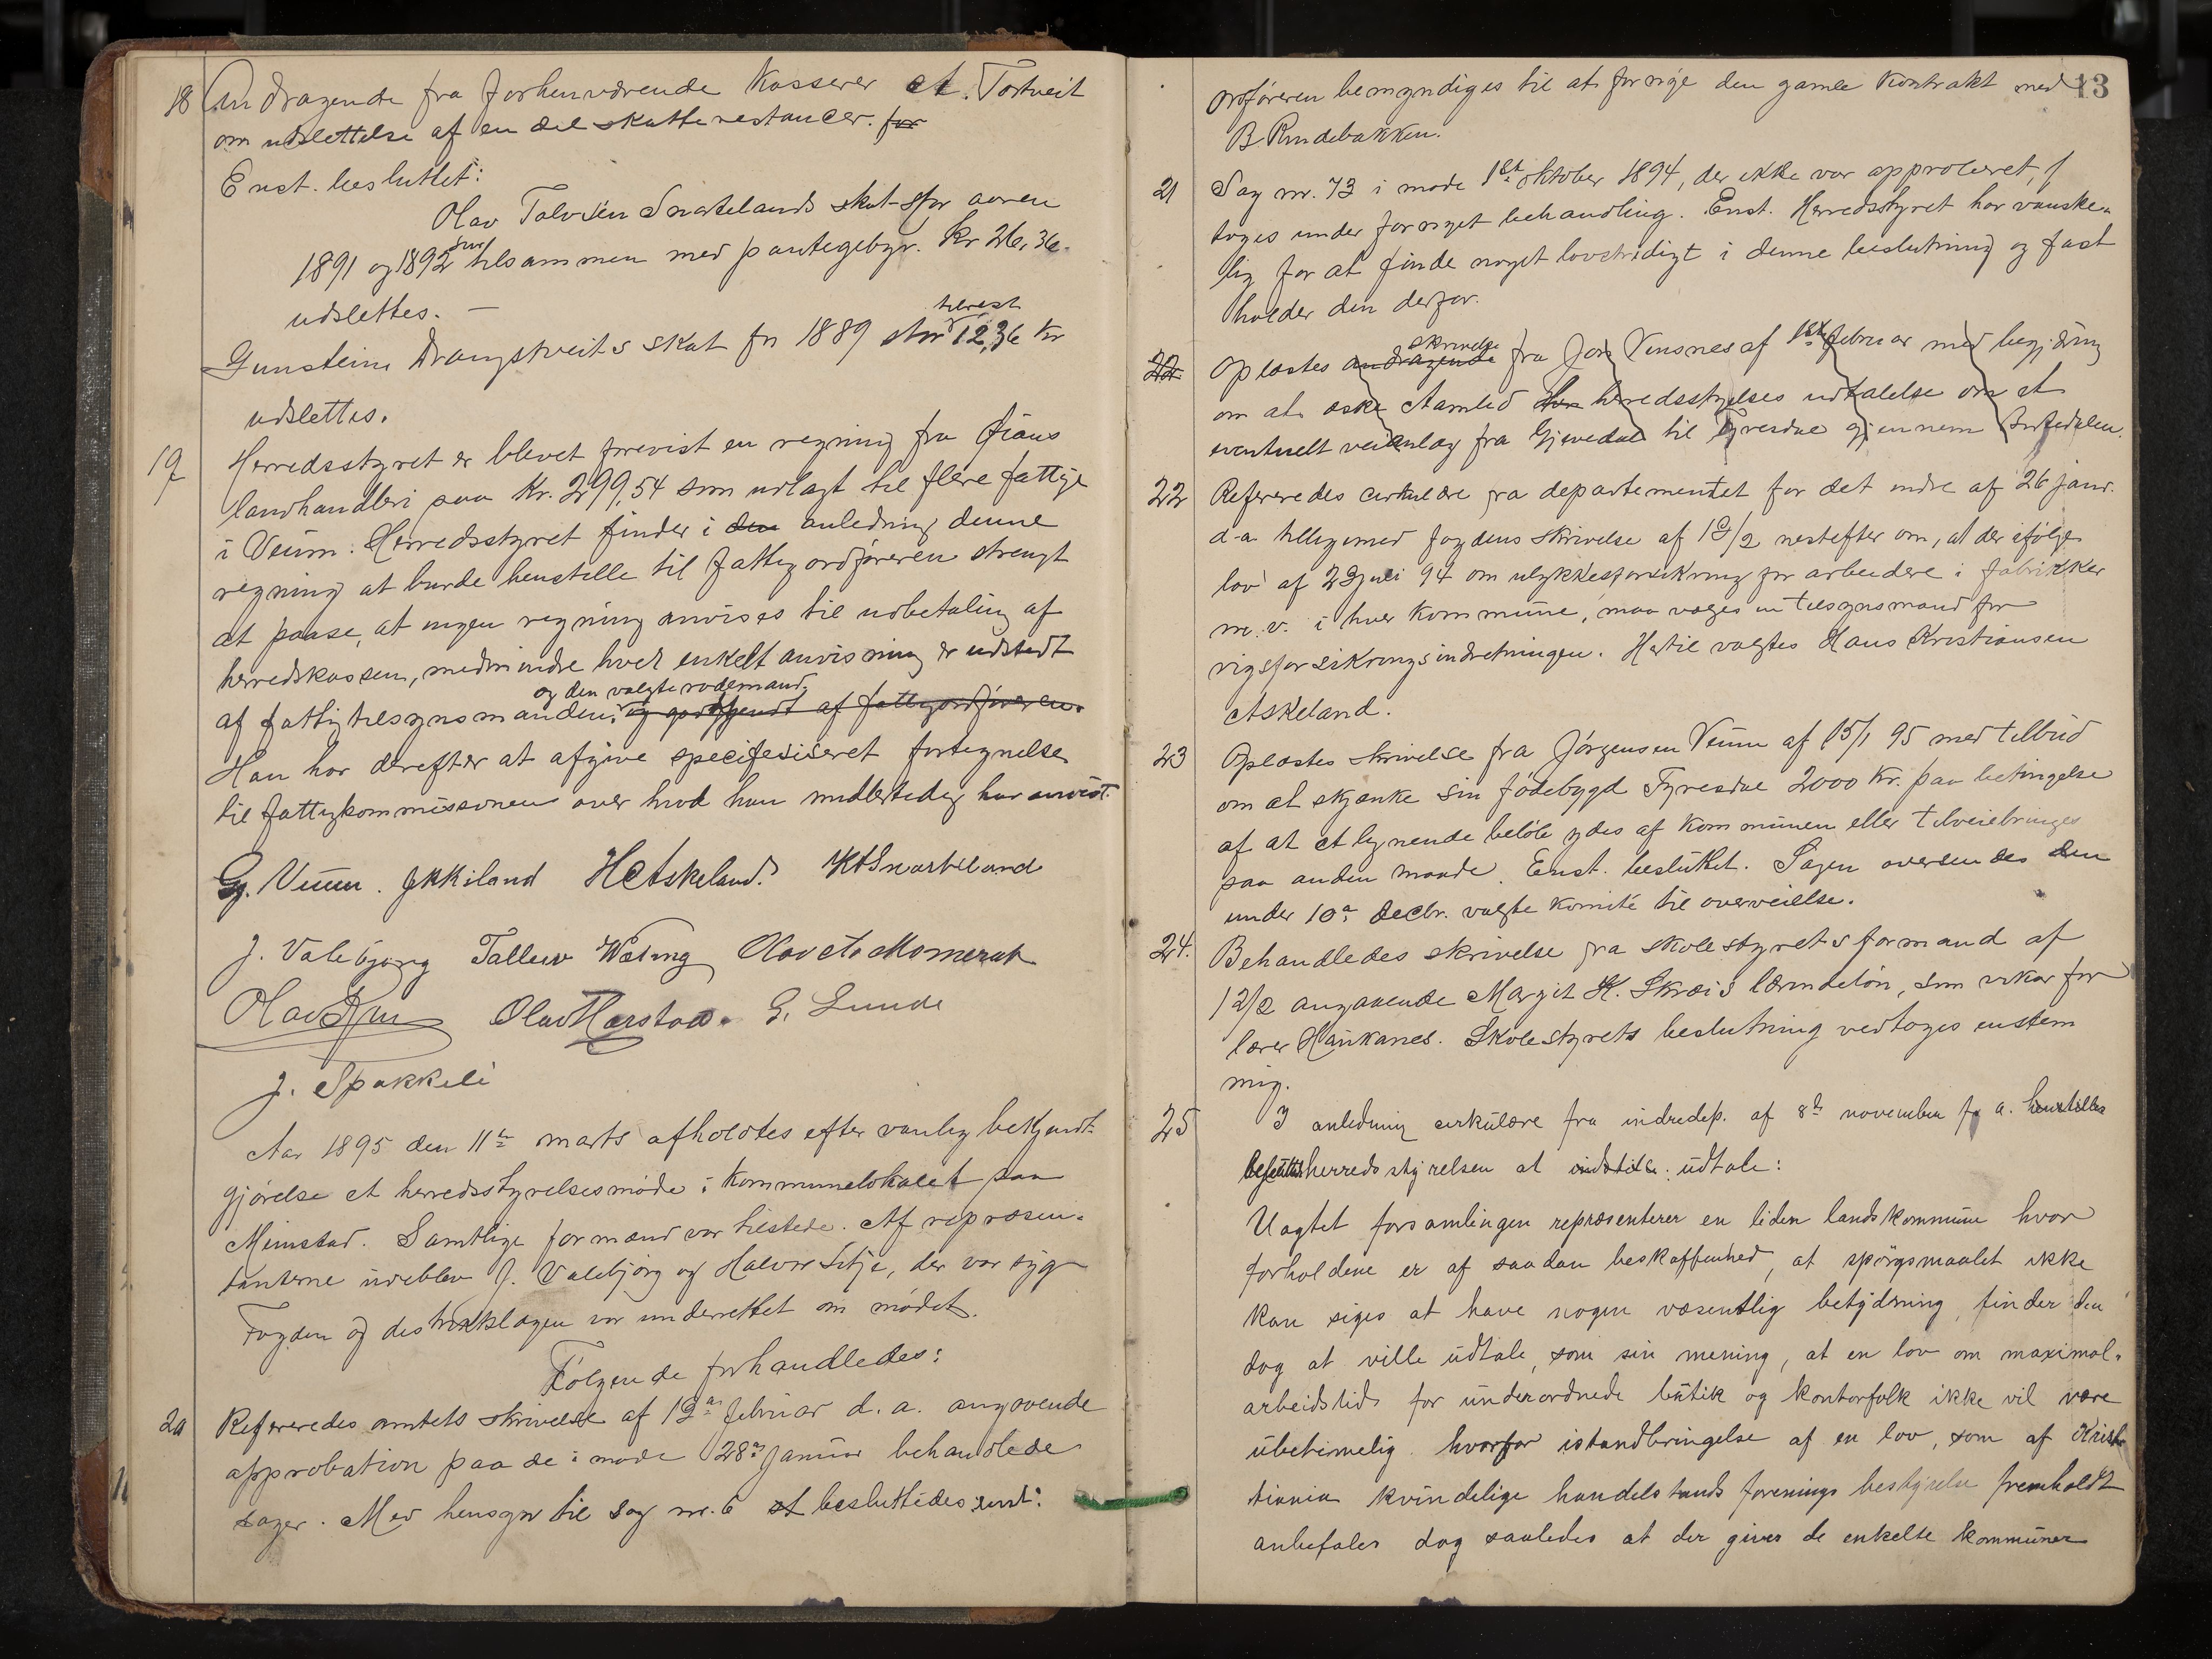 18 Andragende fra forhenværende kasserer A. Tortveit
om udslettelse af en del skatterestancer. for
Enst. besluttet:
Olav Talvsen Snartelands skat for aaren
1891 og 1892 tilsammen med pantegebyr. Kr 26,36
udslettes. —
tilrest
Gunsteins Drangstveits skat for 1889 stor 12,36 Kr
udslettes.
19 Herredsstyret er blevet forevist en regning fra Fians
landhandleri paa Kr. 299,54 som udlagt til flere fattige
i Veum. Herredsstyret finder i den anledning denne
regning at burde henstille til fattigordføreren strengt
at paase, at ingen regning anvises til udbetaling af
herredskassen, medmindre hvert enkelt anvisning er udstedt
og den valgte rodemand,
af fattigtilsynsmanden, og godkjendt af fattigordføreren.
Han har derefter at afgive specifesiseret fortegnelse
til fattigkommissionen over hvad han midlertidig har anvist.
G. Veum. J K Kiland H Askeland. K A Snarteland
J. Valebjørg Tallev Olav A Momrak
Olav Olav Harstad. G. Lunde
J. Spokkeli
Aar 1895 den 11te marts afholdtes efter vanlig bekjendt-
gjørelse et herredsstyrelsesmøde i kommunelokalet paa
Meinstad. Samtlige formænd var tilstede. Af repræsen-
tanterne udeblev J. Valebjørg og Halvor Lilje, der var syg
Fogden og distriktslægen var underrettet om mødet.
Følgende forhandledes:
20 Refereredes amtets skrivelse af 19de februar d. a. angaaende
approbation paa de i møde 28de januar behandlede
sager. Med hensyn til sag nr. 6 st besluttedes enst:
13
ordføreren bemyndiges til at fornye den gamle kontrakt med
B. Rindebakken.
21 Sag nr. 73 i møde 1st oktober 1894, der ikke var approberet,
toges under fornyet behandling. Enst. Herredsstyret har vanske-
lig for at finde noget lovstridigt i denne beslutning og fast
holder den derfor.
skrivelse
22. Oplæstes andragende fra Jon Vensnes af 1st februar med begjæring
om at æske Aamlid herredsstyrelses udtalelse om et
eventuelt veianlæg fra Gjevedal til Tyresdal gjennem
22 Refereredes cirkulære fra departementet for det indre af 26 janr.
d. a tilligemed fogdens skrivelse af 19/2 nestefter om, at der ifølge
lov af 23 juli 94 om ulykkesforsikring for arbeidere i fabrikker
m. v. i hver kommune, maa vælges en tilsynsmand for
rigsforsikringsindretningen. Hertil valgtes Hans Kristiansen
Askeland.
23 Oplæstes skrivelse fra Jørgensen Veum af 15/1 95 med tilbud
om at skjænke sin fødebygd Tyresdal 2000 Kr. paa betingelse
af at et lignende beløb ydes af kommunen eller tilveiebringes
paa anden maade. Enst. besluttet. Sagen oversendes den
under 10de decbr. valgte komité til overveielse.
24. Behandledes skrivelse fra skolestyrets formand af
12/2 angaaende Margit H. Skræis lærindeløn, som vikar for
lærer Haukanes. Skolestyrets beslutning vedtoges enstem
mig.
25 I anledning cirkulære fra indredep. af 8de november f. a. henstilles
herredsstyrelsen at udtale:
Uagtet forsamlingen repræsenterer en liden landskommune hvor
forholdene er af saadan beskaffenhed, at spørgsmaalet ikke
kan siges at have nogen væsentlig betydning, finder den
dog at ville udtale, som sin mening, at en lov om maximal-
arbeidstid for underordnede butik og kontorfolk ikke vil være
ubetimelig hvorfor istandbringelse af en lov, som af Kristi
tiania kvindelige handelstands forenings bestyrelse fremholdt
anbefales dog saaledes at der gives de enkelte kommuner